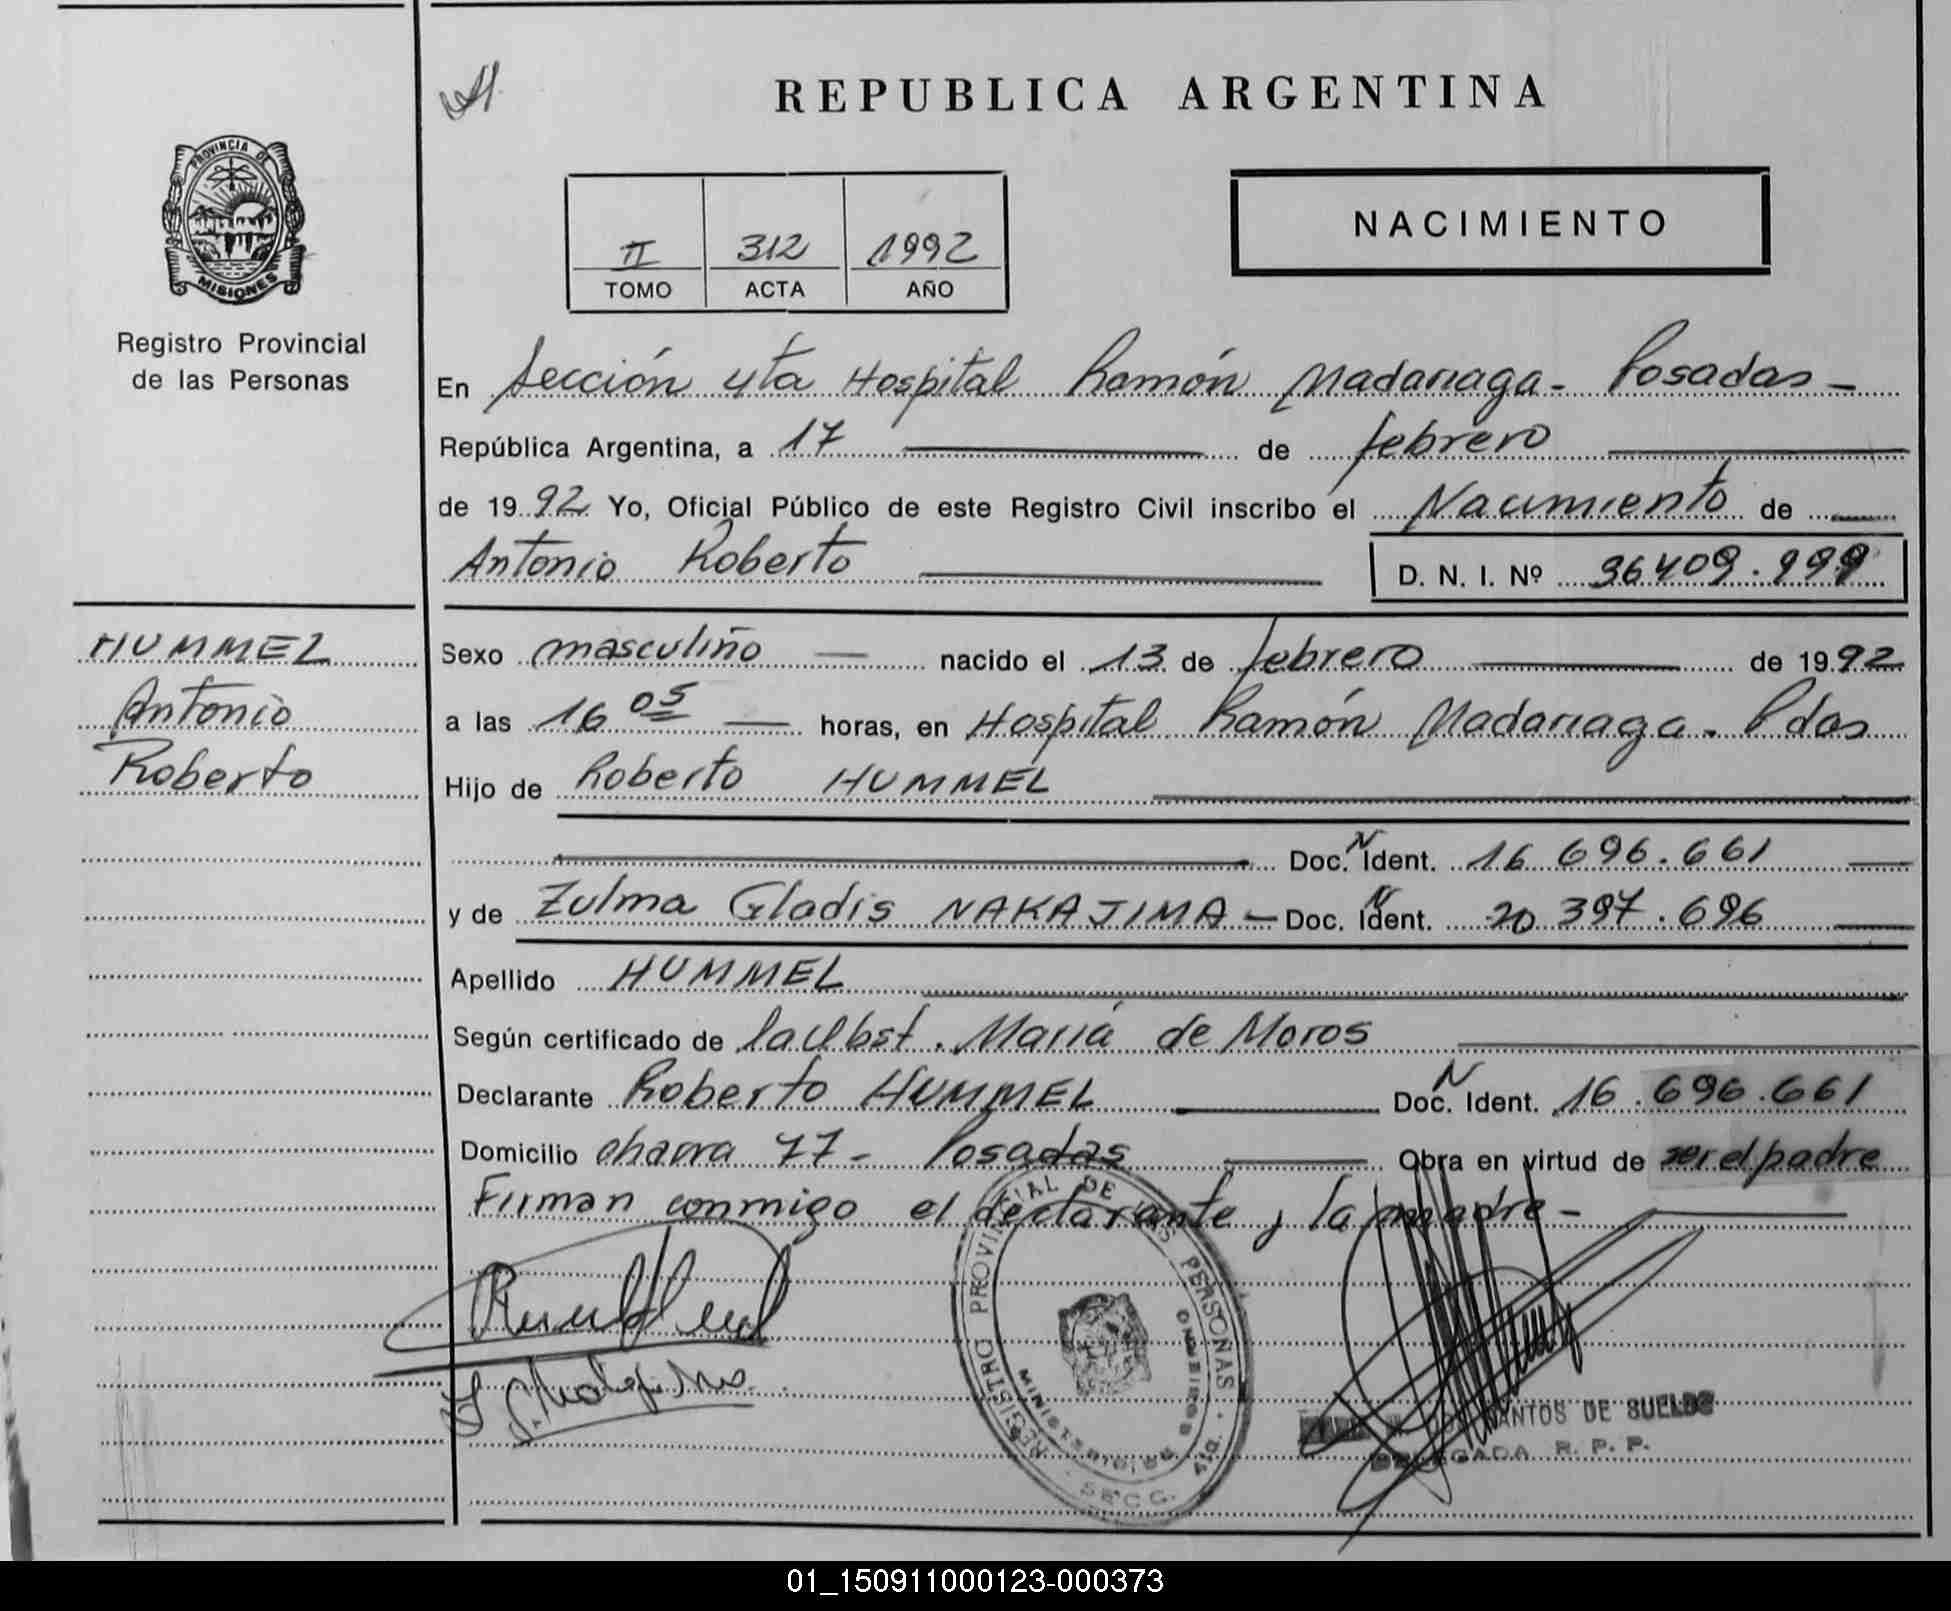 REPUBLICA ARGENTINA
PROVINCIA DE
MISIONES
Registro Provincial
de las Personas
II 312 1992
TOMO ACTA AÑO
NACIMIENTO
En Sección 4ta Hospital Ramón Madariaga - Posadas -
República Argentina, a 17 de febrero
de 1992 Yo, Oficial Público de este Registro Civil inscribo el Nacimiento de
Antonio Roberto D. N. I. Nº 36409.999
HUMMEL
Antonio
Roberto
Sexo masculino nacido el 13 de febrero de 1992
a las 16 05 horas, en Hospital Ramón Madariaga - Pdas
Hijo de Roberto HUMMEL
Doc. N Ident. 16 696.661
y de Zulma Gladis NAKAJIMA - Doc. N Ident. 20 397.696
Apellido HUMMEL
Según certificado de la Obst. María de Moros
Declarante Roberto HUMMEL Doc. N Ident. 16.696.661
Domicilio chacra 77 - Posadas Obra en virtud de ser el padre
Firman conmigo el declarante y la madre -
REGISTRO PROVINCIAL DE LAS PERSONAS
MINISTERIO DE GOBIERNO
SECC.
SANTOS DE SUELDO
DELEGADA R. P. P.
01_150911000123-000373